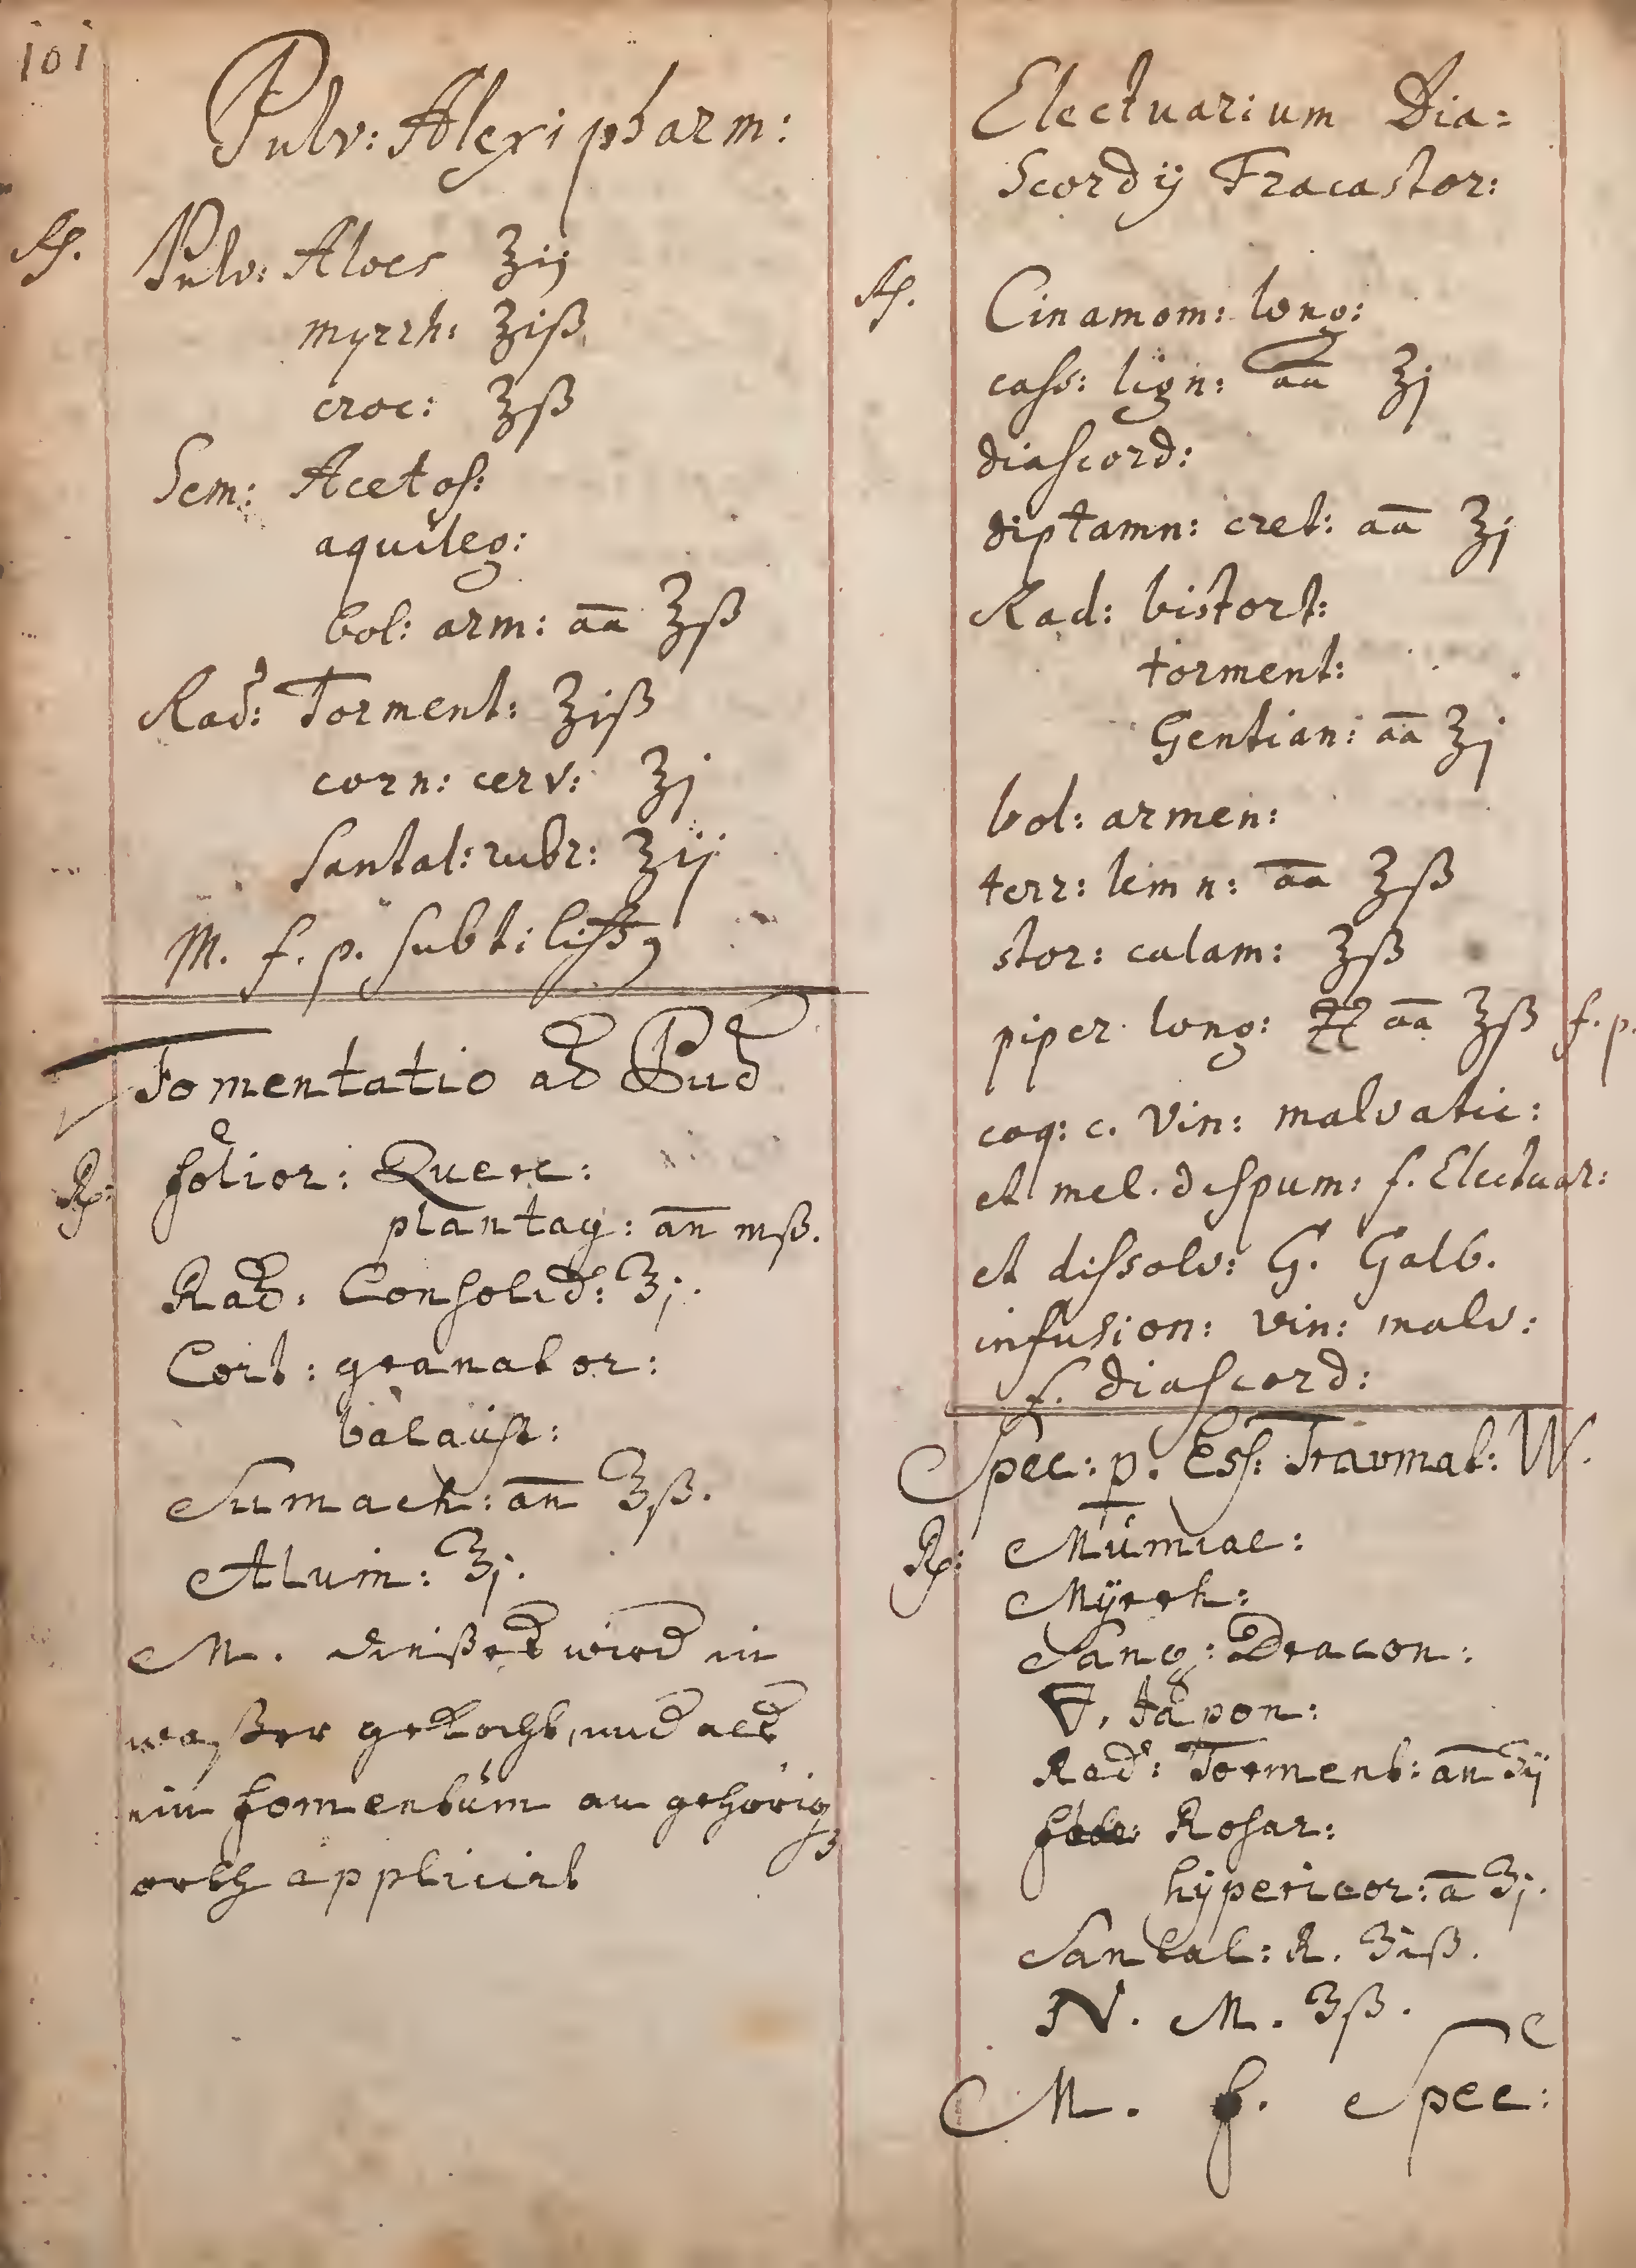 101
Pulv: Alexipharm:
℞. Pulv: Aloes ʒij
myrrh: ʒiß
croc: ʒß
Sem: Acetos:
aquileg:
bol: arm: aa ʒß
Rad: Torment: ʒiß
corn: cerv: ʒj
Santal: rubr: ʒij
M. f. p. subtiliss
Fomentatio ad Pud
℞: folior: Querc:
plantag: an mß.
Rad. Consolid: ʒj.
Cort: granator:
balaust:
Sumach: an ʒß.
Alum: ʒj.
M. dießes wird in
waßer gekocht, und als
ein fomentum an gehörig
orth applicirt
Electuarium Dia=
Scordij Fracastor:
℞. Cinamom: long:
cass: lign: aa ʒj
diascord:
diptamn: cret: aa ʒj
Rad: bistort:
torment:
Gentian: aa ʒj
bol: armen:
terr: lemn: aa ʒß
stor: calam: ʒß
piper long: aa ʒß f. p.
coq: c. Vin: malvatic:
et mel. despum: f. Electuar:
et dissolv: G. Galb.
infusion: vin: malv:
f. diascord:
Spec: p. Ess: Traumat: W.
℞: Mumiae:
Myrrh:
Sang: Dracon:
Japon:
Rad: Torment: an ʒij
Rosar:
hÿpericor: a ʒj.
Santal: R. ʒiß.
N. M. ʒß.
M. f. Spec: